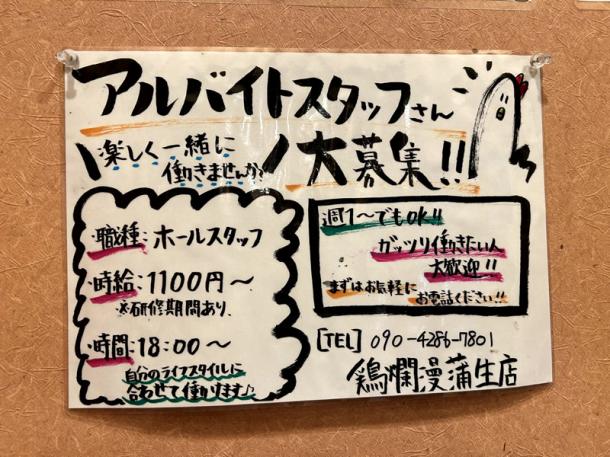 アルバイトスタッフさん
楽しく一緒に
働きませんか?
大募集!!
職種:ホールスタッフ
時給:1100円〜
※研修期間あり
時間:18:00〜
自分のライフスタイルに
合わせて働けます♪
週1〜でもOK!!
ガッツリ働きたい人
大歓迎!!
まずはお気軽に
お電話ください!!
[TEL] 090-4286-7801
鶏爛漫蒲生店